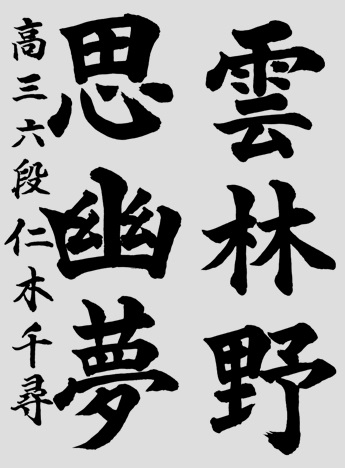 雲林野
思幽夢
高三六段仁木千尋